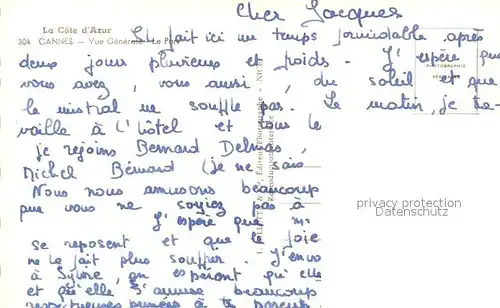 La Côte d'Azur
304 CANNES — Vue Générale - Le Port
Cher Jacques
Il fait ici un temps formidable après
deux jours pluvieux et froids. J'espère que
vous avez, vous aussi, du soleil et que
le mistral ne souffle pas. Le matin, je tra-
vaille à l'hôtel et tous le
je rejoins Bernard Delmas,
Michel Bénard (je ne sais
Nous nous amusons beaucoup
que vous ne soyiez pas à
J'espère que
se reposent et que le
ne la fait plus souffrir. J'envoie
à Sylvie, en espérant qu'elle
et qu'elle s'amuse beaucoup
respectueuses pensées à tes parents
PHOTOGRAPHIE
Éditeurs
NICE
privacy protection
Datenschutz